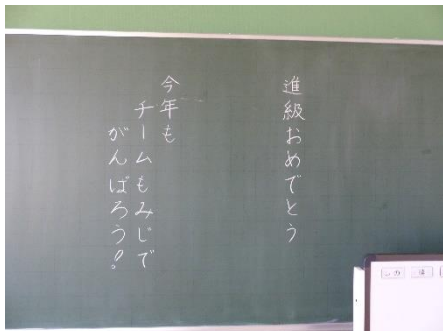 進級おめでとう
今年も
チームもみじで
がんばろう!